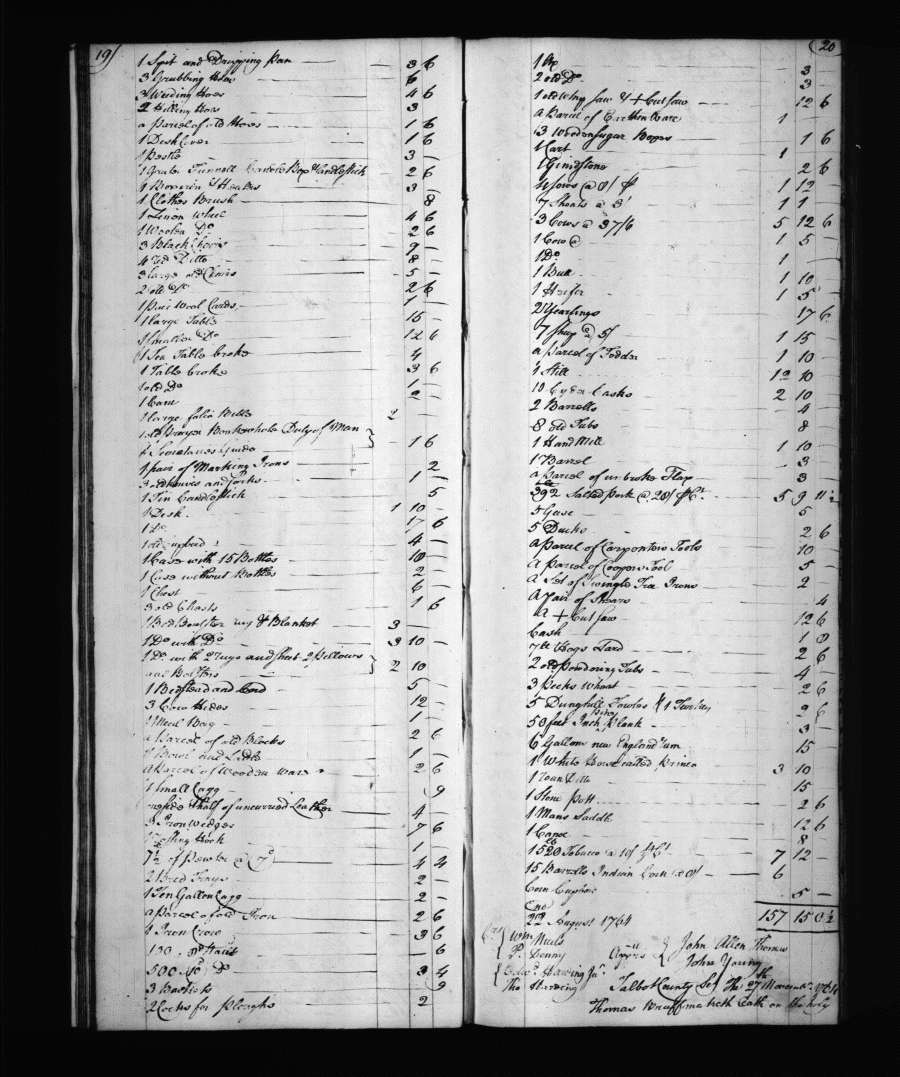 19)
1 Spit and Dripping Pan 3 6
3 Grubbing Hoes 6
3 Weeding Hoes 4 6
2 Hilling Hoes 3
a parcel of old Hoes 1 6
1 Desk Cover 1 6
1 Pestle 3
1 Grater Funnell Candle Box & Candlestick 2 6
3
1 Clothes Brush 8
1 Linon Wheel 4 6
1 Woolen Do 2 6
3 Black Chairs 9
4 Red Ditto 8
3 large old Chairs 5
2 old Do 2 6
1 pair Wool Cards 1
1 large Table 15
1 smaller Do 12 6
1 Tea Table broke 4
1 Table broke 3 6
1 old Do 1
1 Cane 2
1 large folio Bible 2
1 old Prayer Book whole Duty of Man
& Secretarus Guide } 1 6
1 pair of Marking Irons 2
3 old knives and forks 1
1 Tin Candlestick 5
1 Desk 1 10
1 Do 17 6
1 old 4
1 Case with 15 Bottles 10
1 Case without Bottles 2
1 Chest 6
3 old Chests 1 6
1 Bed Boulster rug & Blanket 3
1 Do with Do 3 10
1 Do with 2 rugs and sheet 2 pillows
and Bolsters } 2 10
1 Bedstead and Cord 5
3 Cow Hides 12
1 Meal Bag 1
a Parcel of old Blocks 2 6
1 Bowl and Ladle 1
a Parcel of Wooden Ware 2 6
1 small Cagg 9
a side & half of uncurried Leather 4
3 Iron wedges 7 6
Hook 1
of Pewter @ 4 4
2 Bread Trays 2
1 Ten Gallon Cagg 2
a parcel of old Iron 2 6
1 Iron Crow 3 6
6
500 Do 3 4
3 Baskets 9
2 Locks for Ploughs 2
(20
1 Ax 3
2 old Do 3
1 old Whip Saw & + Cut Saw 12 6
a Parcel of Earthen Ware 1
3 Wooden Sugar Boxes 1 6
1 Cart 1
1 Grindstone 2 6
4 Sows @ 8/ 1 12
7 Shoats @ 3/ 1 1
3 Cows @ 37/6 5 12 6
1 Cow @ 1 5
1 Do 1
1 Bull 1 10
1 Heifer 1 5
2 Yearlings 17 6
7 Sheep @ 5/ 1 15
a parcel of Fodder 1 10
1 Still 12 10
10 Cyder Casks 2 10
2 Barrells 4
8 old Tubs 8
1 Hand Mill 1 10
1 Barrel 3
a Parcel of unbroke Flax 3
392 Salted Pork @ 28/ 5 9 11 ½
5 Geese 5
5 Ducks 2 6
a Parcel of Carpenters Tools 10
a Parcel of Coopers Tool 5
a Set of Swingle Tree Irons 2
a Pair of Shears 4
a + Cut Saw 12 6
Cash 1 8
7 lb Hogs Lard 2 6
2 old Powdering Tubs 4
3 Pecks Wheat 2 6
5 Dunghill Fowles & 1 Turkey 9 6
50 feet Inch Plank 3
6 Gallons new England rum 15
1 White Horse called Prince 3 10
1 Roan Ditto 15
1 Stone Pott 2 6
1 Mans Saddle 12 6
1 Canoe 8
1520 Tobacco @ 10/ 7 12
15 Barrells Indian Corn @ 8/ 6
5
157 15 8 ½
22d August 1764
Wm
P. Denny
John Allen Thomas
John Young
Talbot County Sct The 27th
Tho Harding
Thomas hath Oath on the holy